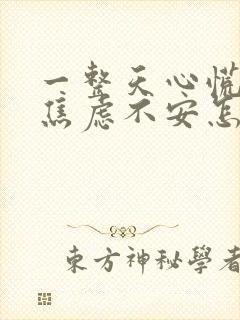 一整天心慌
焦虑不安怎
東方神秘學者